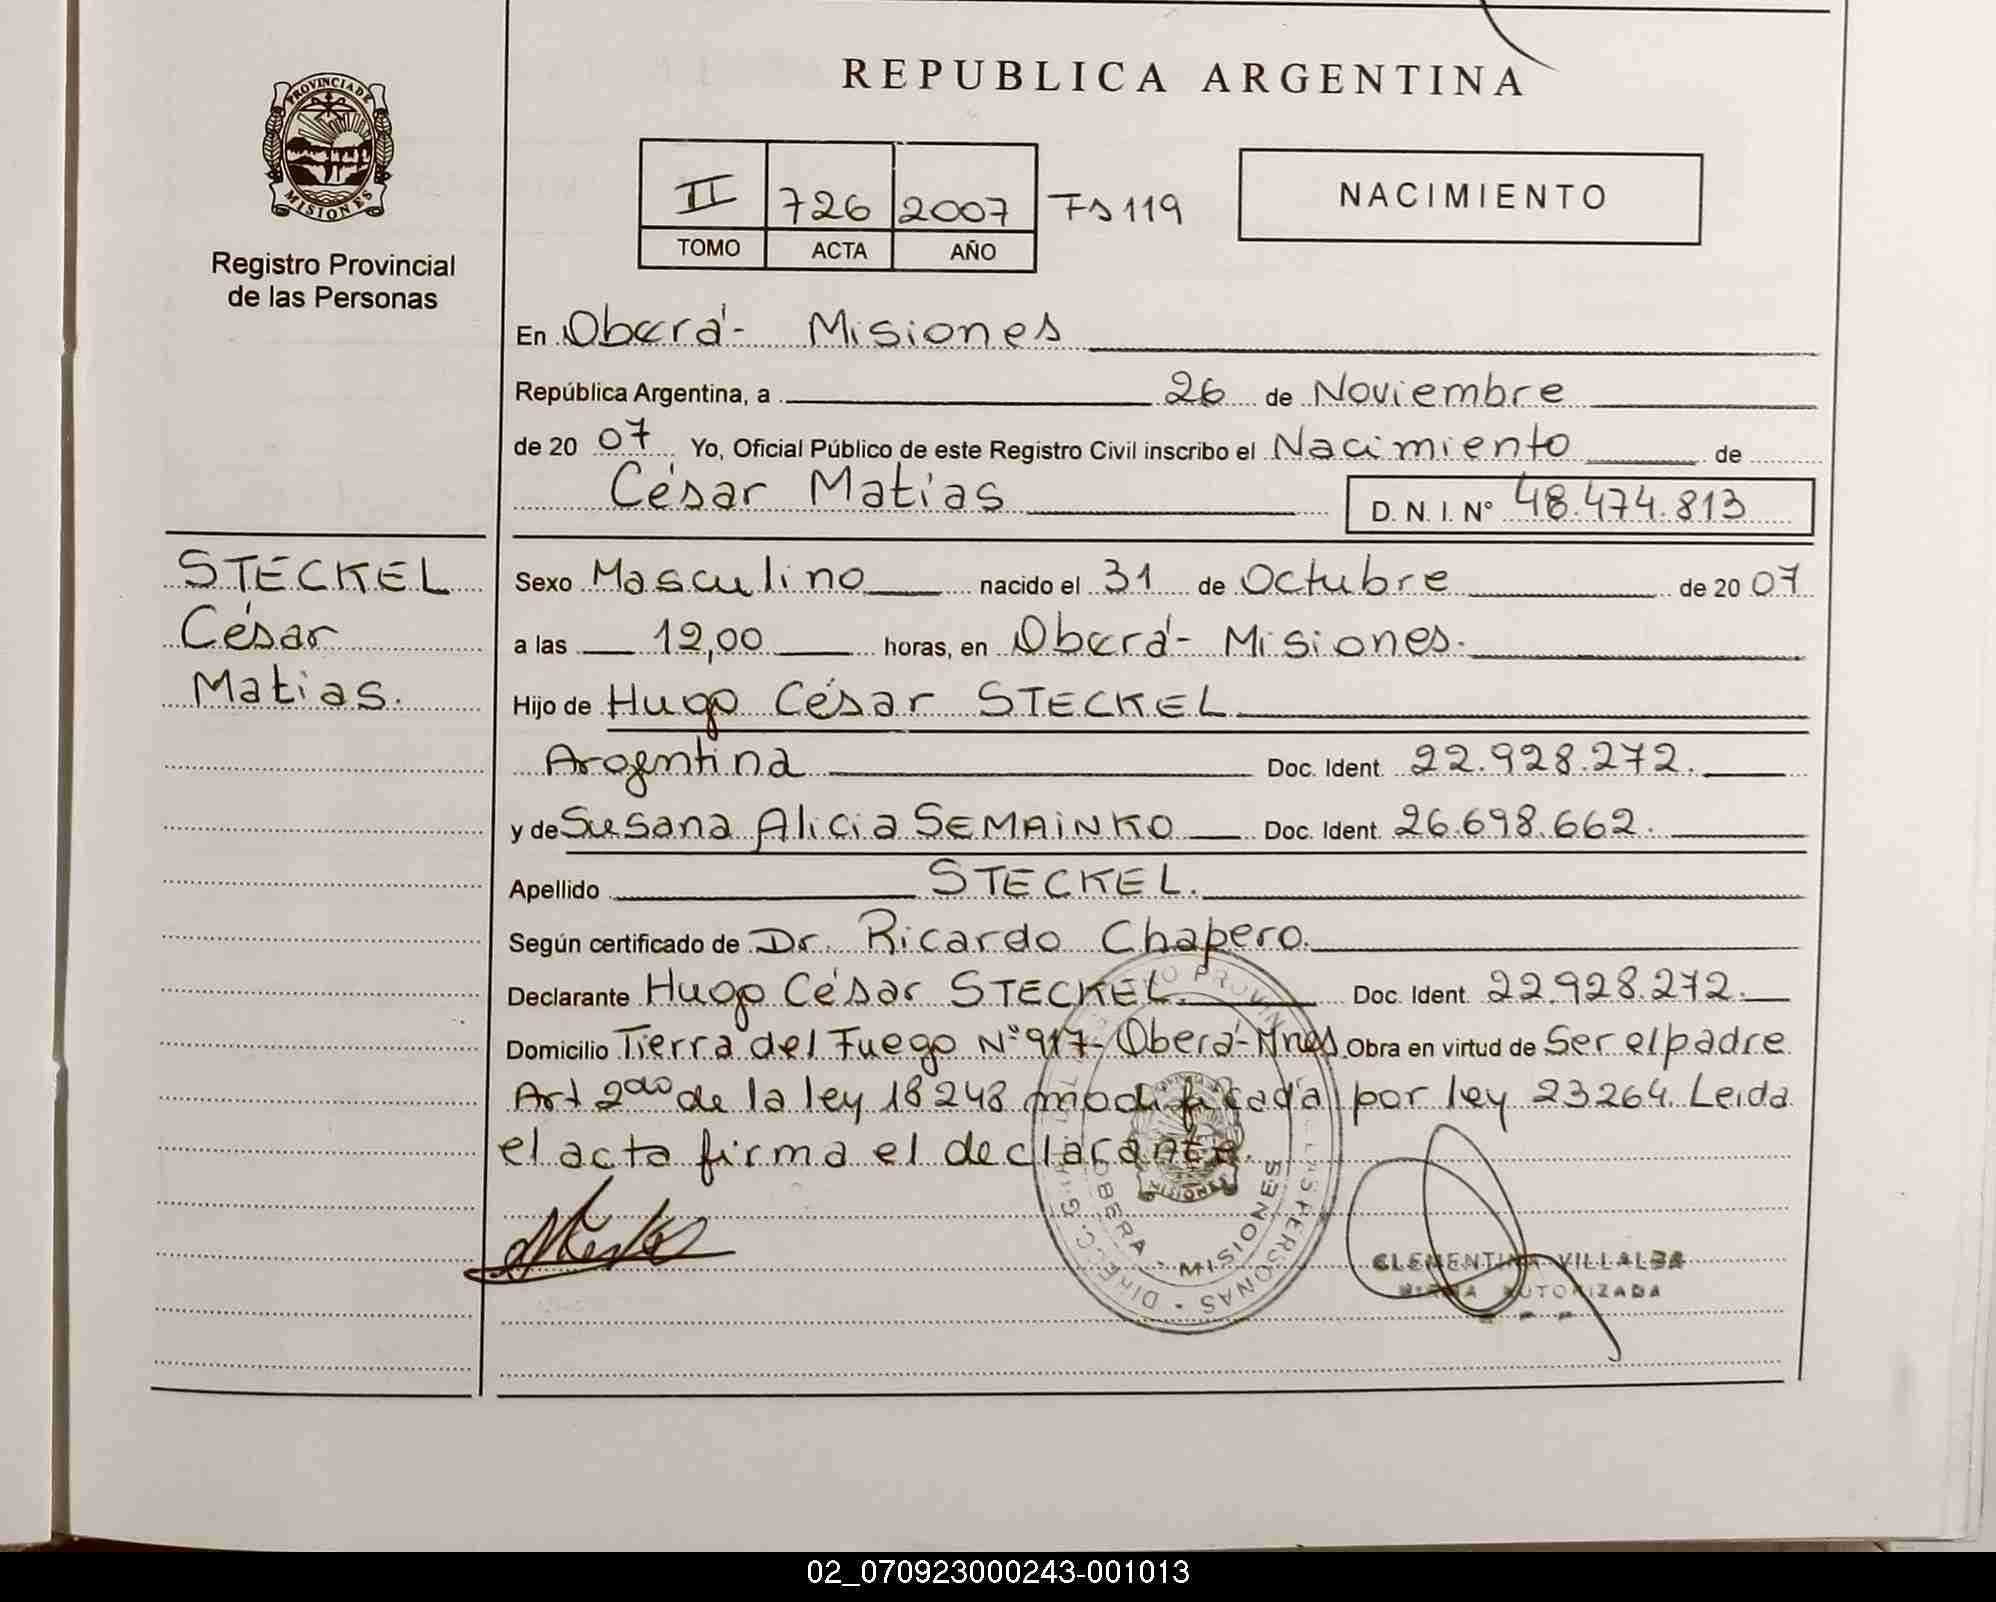 REPUBLICA ARGENTINA
PROVINCIA DE
MISIONES
Registro Provincial
de las Personas
II 726 2007 Fs 119
TOMO ACTA AÑO
NACIMIENTO
En Oberá - Misiones
República Argentina, a 26 de Noviembre
de 20 07 Yo, Oficial Público de este Registro Civil inscribo el Nacimiento de
César Matias D. N. I. Nº 48.474.813
STECKEL
César
Matias.
Sexo Masculino nacido el 31 de Octubre de 20 07
a las 12,00 horas, en Oberá - Misiones.
Hijo de Hugo César STECKEL
Argentina Doc. Ident. 22.928.272.
y de Susana Alicia SEMAINKO Doc. Ident. 26.698.662.
Apellido STECKEL.
Según certificado de Dr. Ricardo Chapero.
Declarante Hugo César STECKEL. Doc. Ident. 22.928.272.
Domicilio Tierra del Fuego Nº 917- Oberá- Mnes. Obra en virtud de Ser el padre
Art 2do de la ley 18248 modificada por ley 23264. Leida
el acta firma el declarante.
OBERA - MISIONES
MISIONES
CLEMENTINA VILLALBA
FIRMA AUTORIZADA
02_070923000243-001013